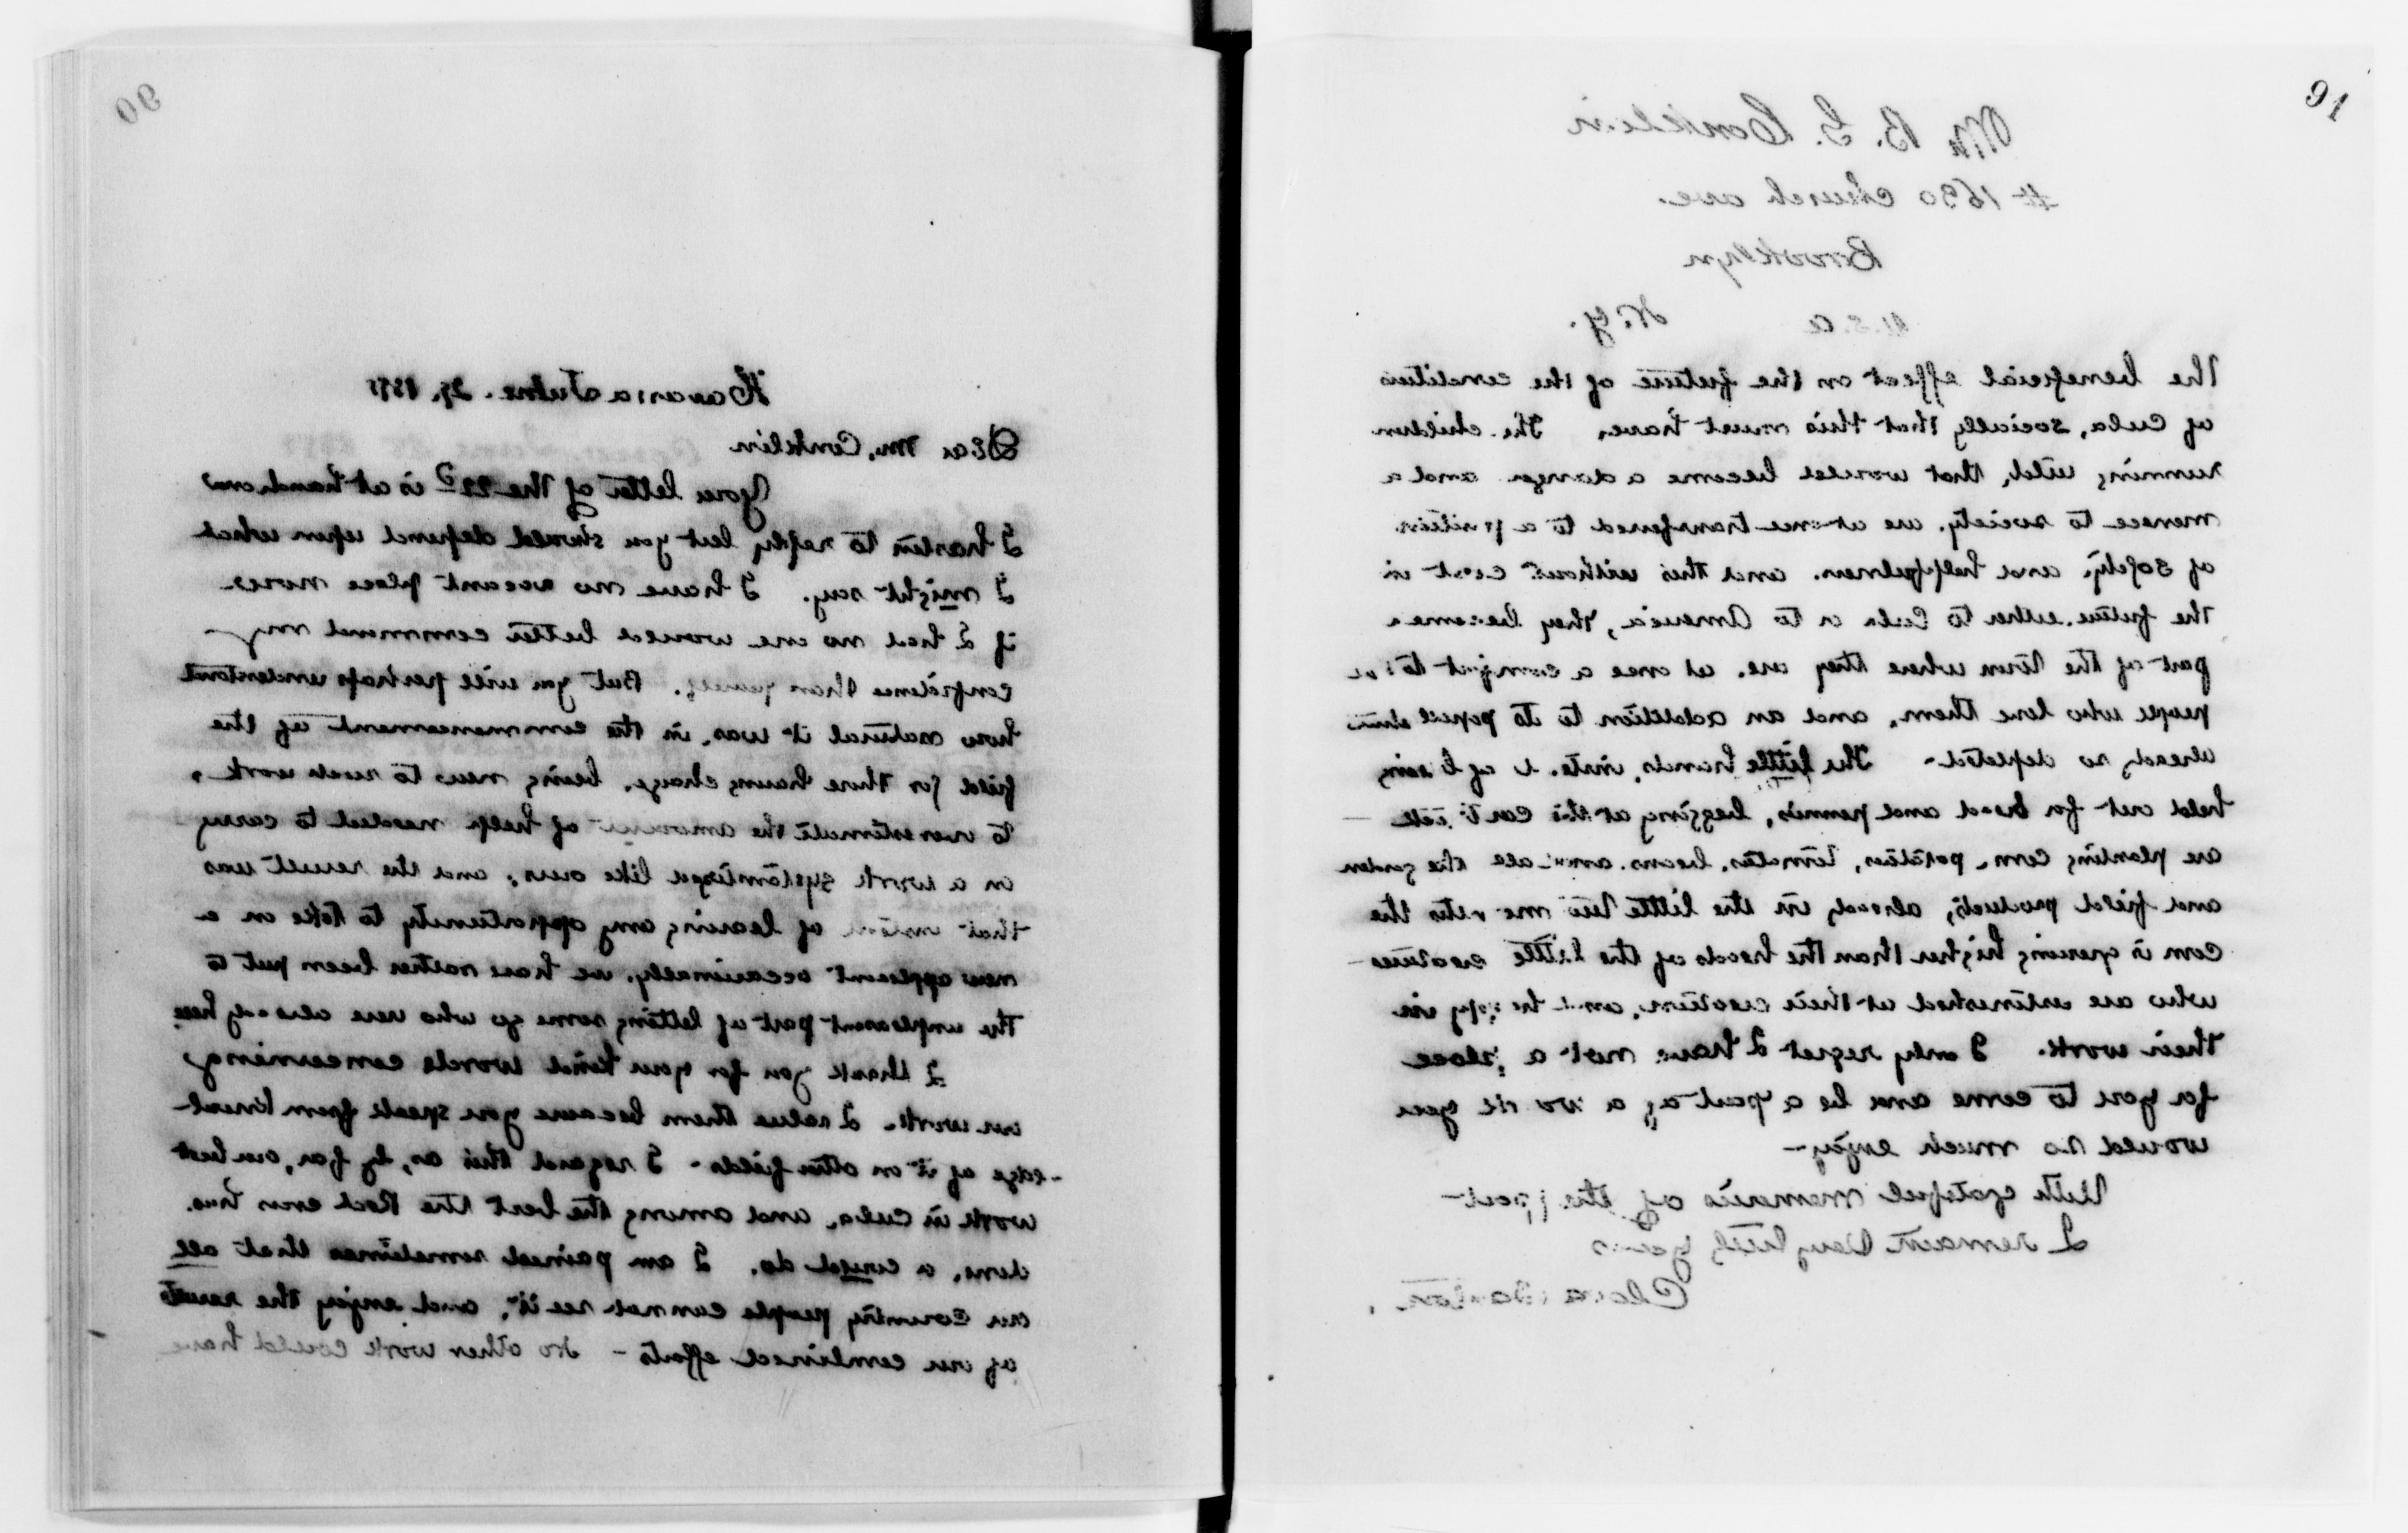 90
Havana June. 29, 1899
Dear Mr. Conklin
Your letter of the 22d is at hand, and
I hasten to reply lest you should depend upon what
I might say. I have no vacant place more
if I had no one would better command my
confidence than yourself. But you will perhaps understand
how natural it was, in the commencement of the
field for those having charge, being new to such work,
to overestimate the amount of help needed to carry
on a work systemized like ours, and the result was
that instead of leaving any opportunity to take on a
new applicant occasionally, we have rather been put to
the unpleasant part of letting some go who were already here
I thank you for your kind words concerning
our work. I value them because you speak from knowl-
-edge of it on other fields - I regard this as, by far, our best
work in Cuba, and among the best the Red Cross has
done, or could do. I am pained sometimes that all
our country people cannot see it, and enjoy the results
of our combined efforts - No other work could have
91
Mr B. G. Conklin
# 1630 Church ave.
Brooklyn
N.Y.
U.S.A
The beneficial effect on the future of the conditions
of Cuba, socially that this must have. The children
running wild, that would become a danger and a
menace to society, are at once transferred to a position
of safety, and helpfulness. and this without cost in
the future either to Cuba or to America, they become a
part of the town where they are, at once a comfort to the
people who love them, and an addition to its population
already so depleted - The little hands, instead of being
held out for bread and pennies, begging at the
are planting corn, potatoes, tomatoes, beans, and all the garden
and field products, already in the little two months the
corn is growing higher than the heads of the little creatures -
who are astonished at their creation, and happy in
their work. I only regret I have not a place
for you to come and be a part of a work you
would so much enjoy -
With grateful memories of the past -
I remain Very truly yours
Clara Barton.